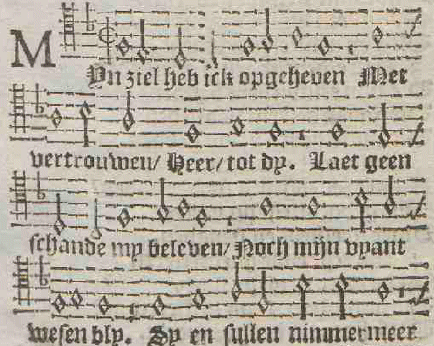 MYn ziel heb ick opgeheven Met
vertrouwen/ Heer/ tot dy. Laet geen
schande my beleven/ Noch mijn vyant
wesen bly. Sy en sullen nimmermeer